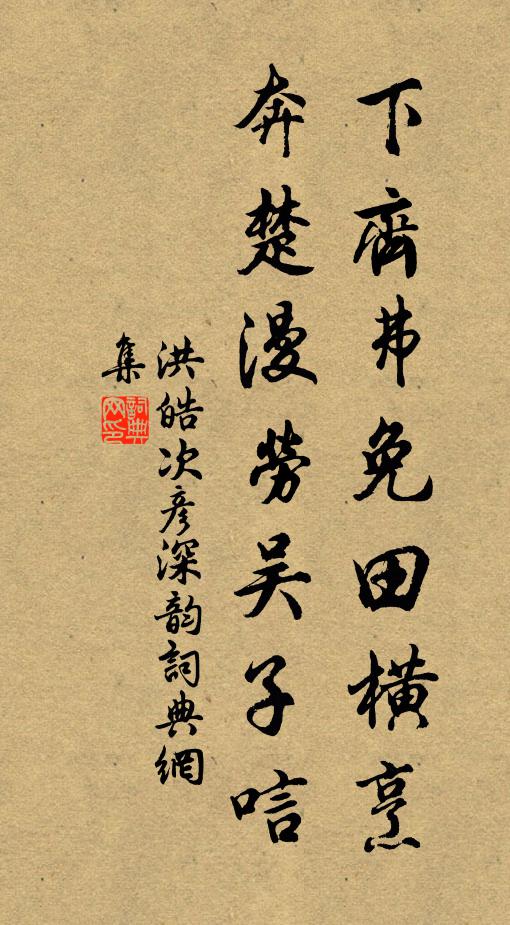 下齊弗免田橫烹
奔楚漫勞吳子唁
洪皓次彥深韵詞典網
集
詞典
网印